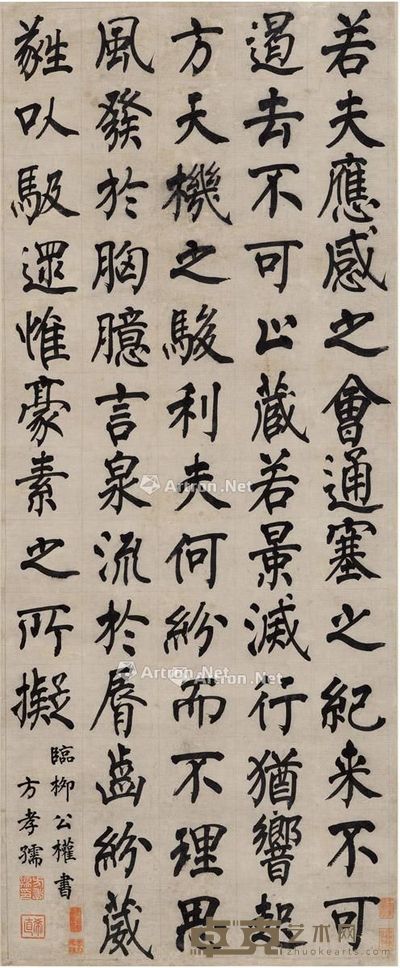 若夫應感之會通塞之紀来不可
遏去不可止藏若景滅行猶響起
方天機之駿利夫何紛而不理思
風發於胸臆言泉流於脣齒紛葳
蕤以馺遝惟豪素之所擬
臨柳公權書
方孝孺
Artron.Net
Artron.Net
卓克艺术网
http://www.zhuokearts.com